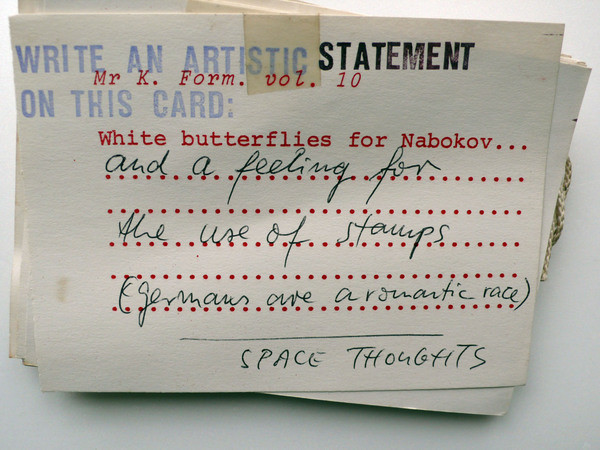 WRITE AN ARTISTIC STATEMENT
Mr K. Form. vol. 10
ON THIS CARD:
White butterflies for Nabokov...
and a feeling for
the use of stamps
(germans are a romantic race)
SPACE THOUGHTS